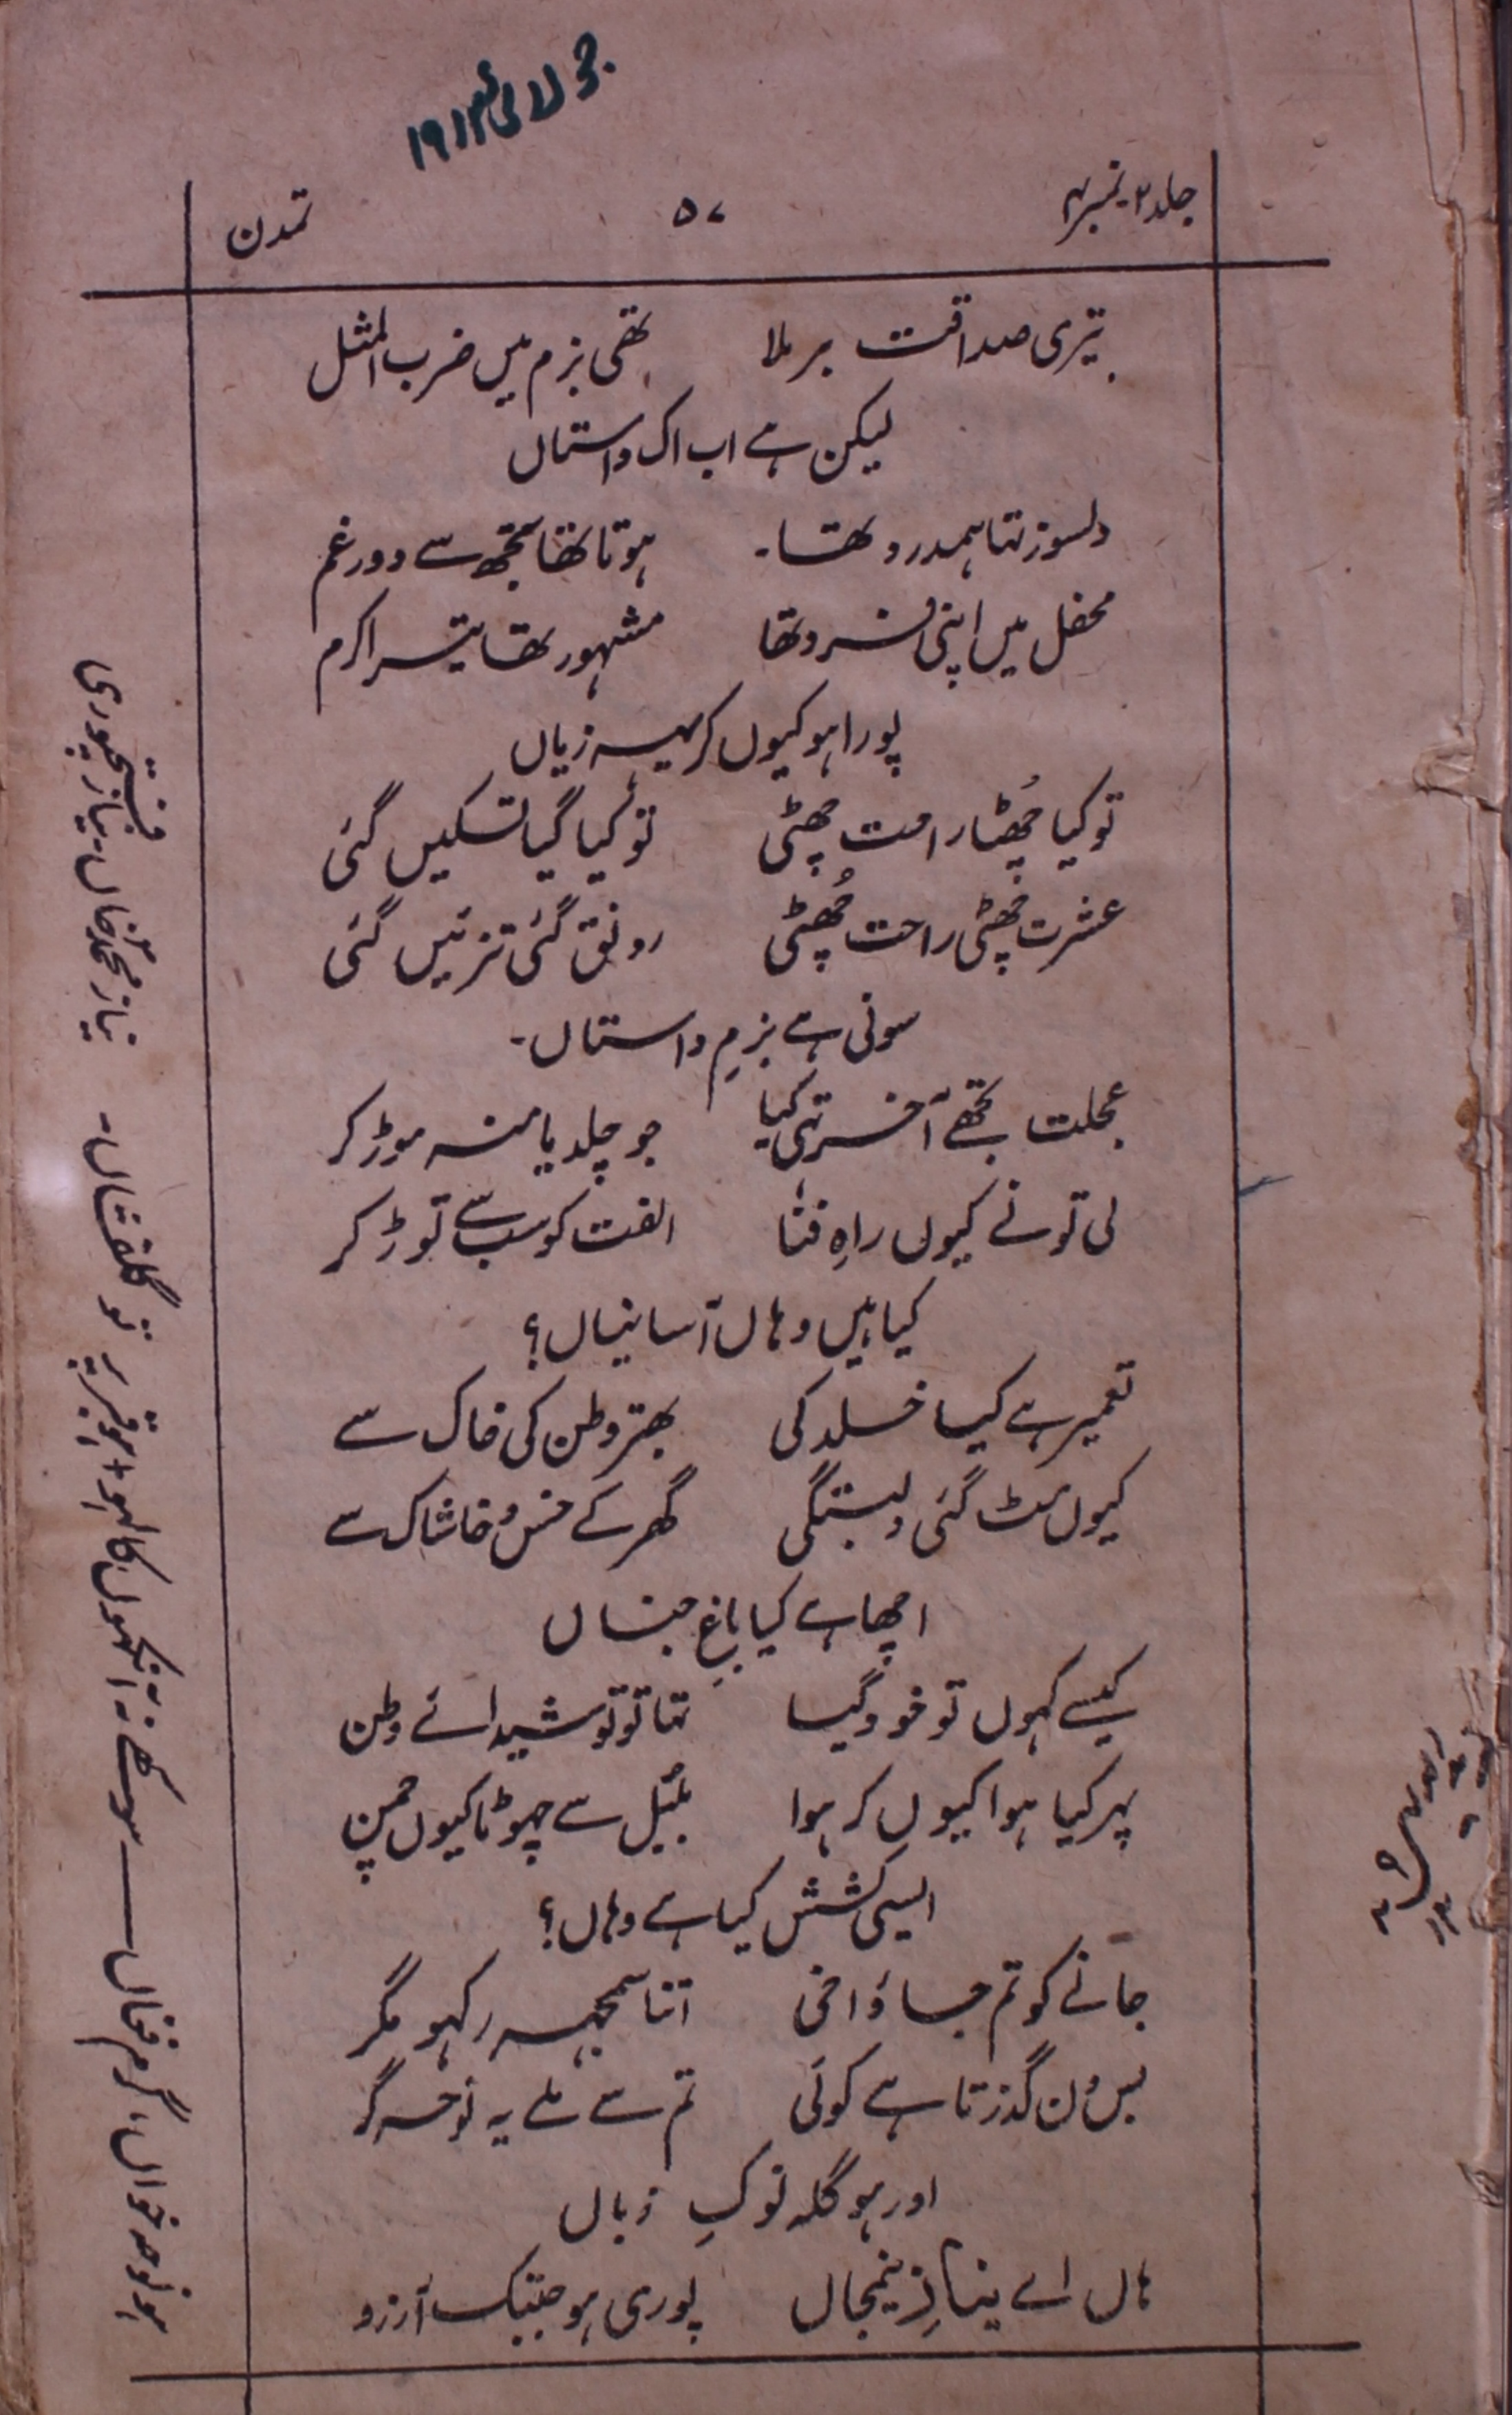 جولائی ۱۹۱۲ء
جلد ۳ - نمبر ۴ ۵۷ تمدن
تیری صداقت برملا تھی بزم میں ضرب المثل
لیکن ہے اب اک داستاں
دلسوز تہا ہمدرد تھا۔ ہوتا تھا تجھ سے دور غم
محفل میں اپنی فرد تھا مشہور تھا تیرا کرم
پورا ہو کیوں کر یہہ زیاں
تو کیا چُھٹا رامت چھٹی تو کیا گیا تسکیں گئی
عشرت چُھٹی راحت چُھٹی رونق گئی تزئیں گئی
سونی ہے بزمِ داستاں۔
عجلت تجھے آخر تہی کیا جو چلدیا منہ موڑ کر
لی تو نے کیوں راہِ فنا الفت کو سب سے توڑ کر
کیا ہیں وہاں آسانیاں؟
تعمیر ہے کیا خلد کی بہتر وطن کی خاک سے
کیوں مٹ گئی دلبستگی گھر کے خس و خاشاک سے
اچھا ہے کیا باغِ جناں
کیسے کہوں تو خود گیا تہا تو تو شیدائے وطن
پہر کیا ہوا کیوں کر ہوا بلبل سے چہوٹا کیوں چمن
ایسی کشش کیا ہے وہاں؟
جانے کو تم جاؤ اخی اتنا سمجہہ رکہو مگر
بس دن گذرتا ہے کوئی تم سے ملے یہ نوحہ گر
اور ہو گلہ نوکِ زباں
ہاں اے نیازِ نیمجاں پوری ہو جبتک آرزو
ہو نوحہ خواں، گرم فغاں — سوکھے نہ آنکھوں کا لہو + ہو قبر پر تو گلفشاں۔ نیاز محمد خاں۔ نیاز فتحپوری